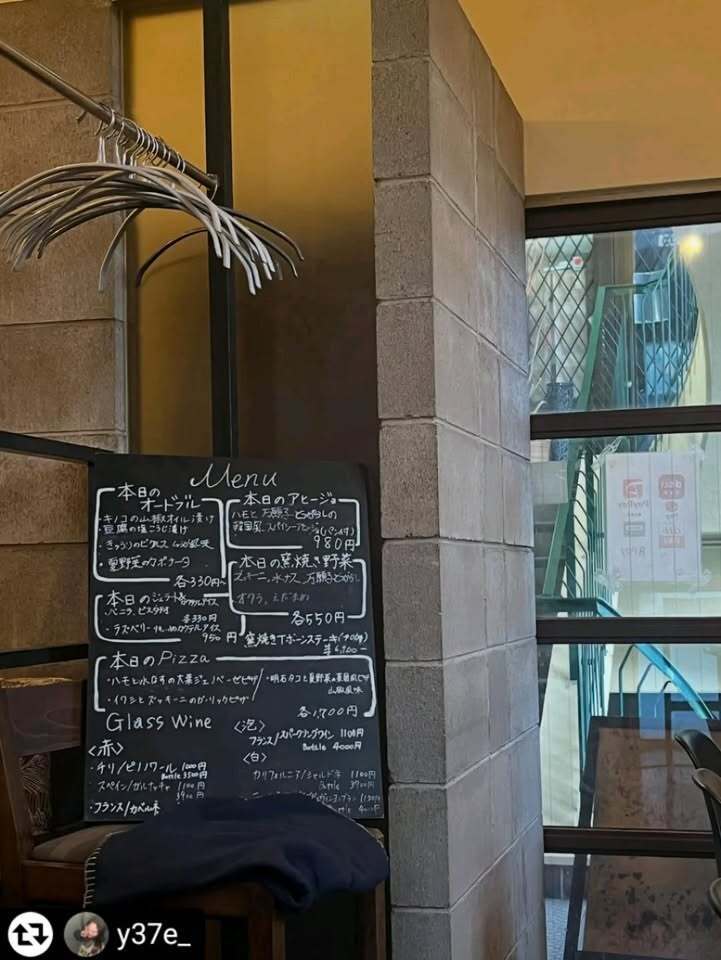 Menu
本日の
オードブル
・キノコの山椒オイル漬け
・豆腐の塩こうじ漬け
・きゅうりのピクルス
・夏野菜のカポナータ
各330円~
本日のアヒージョ
ハモと万願寺とうがらしの
韓国風、スパイシーアヒージョ(パン付)
980円
本日の窯焼き野菜
ズッキーニ、水ナス、万願寺とうがらし
オクラ、えだまめ
各550円
本日のジェラート
・バニラ、ピスタチオ
各330円
・ラズベリー カクテルアイス
950円
窯焼きTボーンステーキ
本日のPizza
・ハモと水なすの大葉ジェノベーゼピザ
・イワシとズッキーニのガーリックピザ
・明石タコと夏野菜の
山椒風味
各1,700円
Glass Wine
<赤>
・チリ/ピノノワール 1000円
Bottle 3500円
スペイン/ガルナッチャ 1100円
3900円
・フランス/カベルネ
<泡>
フランス/スパークリングワイン 1100円
Bottle 4000円
<白>
カリフォルニア/シャルドネ 1100円
Bottle 3900円
PayPay
y37e_